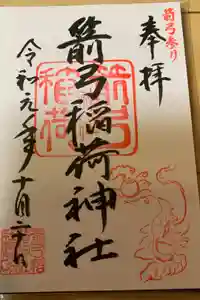 箭弓参り
奉拝
箭弓
稲荷
箭弓稲荷神社
令和元年十月